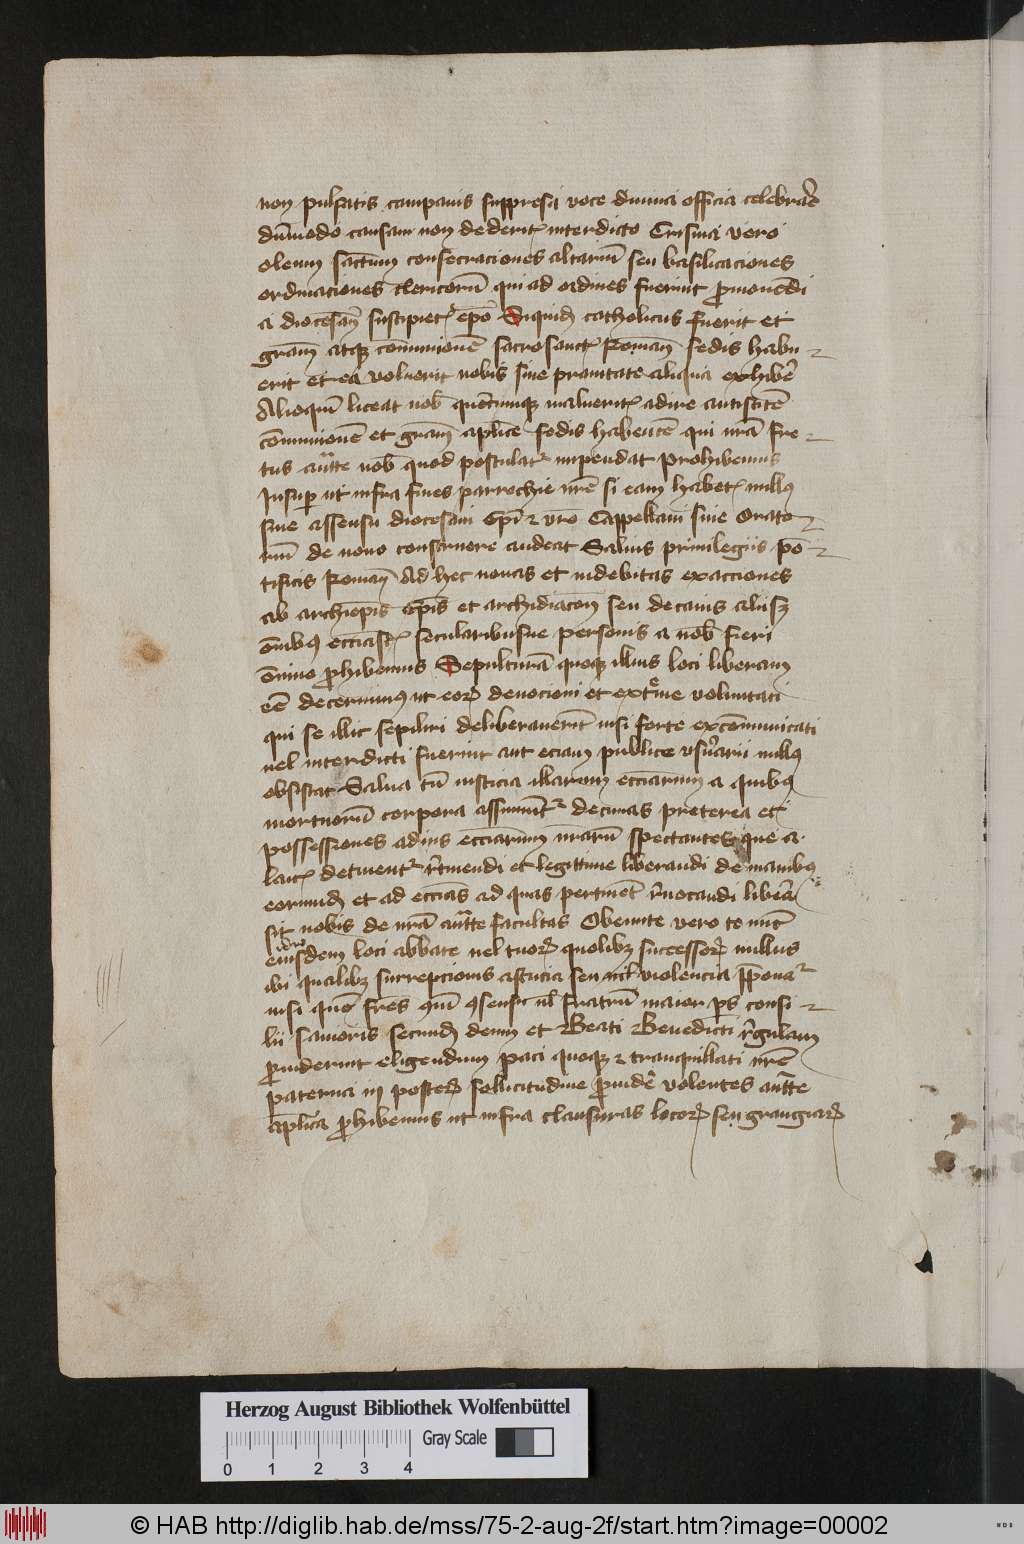 non pulsatis campanis suppressa voce diuina officia celebrar̄e
dūmodo causam non dederitꝭ interdicto Crisma vero
oleum sāctum consecraciones altariū seu basilicaciones
ordinaciones clericorū qui ad ordines fuerint ꝓmouēdi
a diocesan̄ suscipietꝭ ep̄o Siquidē catholicus fuerit et
grām atqꝫ cōmunionē sacrosancte Roman̄ sedis habu
erit et ea voluerit nobis sine prauitate aliqua exhibēr
Alioquī liceat nob̄ quēcumqꝫ malueritꝭ adire antistitē
cōmunionē et grām ap̄lice sedis habentē qui nr̄a fre
tus aucttē nob̄ quod postulatꝭ impendat Prohibemus
Insuꝑ ut infra fines parrochie nr̄e si eam habetꝭ nullꝰ
sine assensu diocesani Ep̄i ⁊ vrō Cappellam siue Orato
rium de nouo construere audeat Saluis priuilegiis pō
tificis Roman̄ Ad hec nouas et indebitas exacciones
ab archiep̄is ep̄is et archidiacon̄ seu decanis aliisqꝫ
ōnibꝰ eccīastꝭ secularibusue personis a nob̄ fieri
ōnino ꝓhibemus Sepulturā quoqꝫ illius loci liberam
eē decernimꝰ ut eorꝝ deuocioni et extrēme voluntati
qui se illic sepiliri deliberauerīt nisi forte excōmunicati
uel interdicti fuerint aut eciam publice vsūrarii nullꝰ
obsistat Salua tn̄ iusticia illarum eccīarum a quibꝰ
mortuorū corpora assumūtꝭ decimas preterea et
possessiones ad ius eccīarum nr̄arū spectantes que a
laicꝭ detinentꝭ r̄dimendi et legittime liberandi de manibꝰ
eorundē et ad eccīas ad quas pertinēt r̄uocandi liberā
sit nobis de nr̄a aucttē facultas Obeunte vero te nūc
eiusdem loci abbate uel tuorꝝ quolibꝫ successorꝝ nullus
ibi qualibꝫ surrepcionis astucia seu violencia p̄ponatꝭ
nisi quē fr̄es ꝯmūi ꝯsensu ul̄ fratrū maior ps̄ consi
lii sanioris secundū deum et Beati Benedicti r̄gulam
ꝓuiderint eligendum paci quoqꝫ ⁊ tranquillitati nr̄e
paterna in posterꝝ sollicitudine ꝓuidēr volentes aucttē
ap̄lica ꝓhibemus ut infra clausuras locorꝝ seu grangiarꝝ
Herzog August Bibliothek Wolfenbüttel
Gray Scale
0 1 2 3 4
© HAB http://diglib.hab.de/mss/75-2-aug-2f/start.htm?image=00002